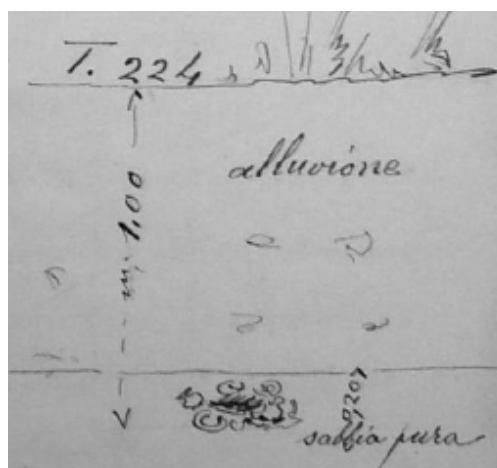 T. 224
alluvione
m. 1,00
0,20
sabbia pura